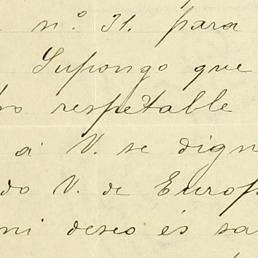 nº 31. para
Supongo que
respetable
á V. se dign
do V. de Europ
mi deseo és sa